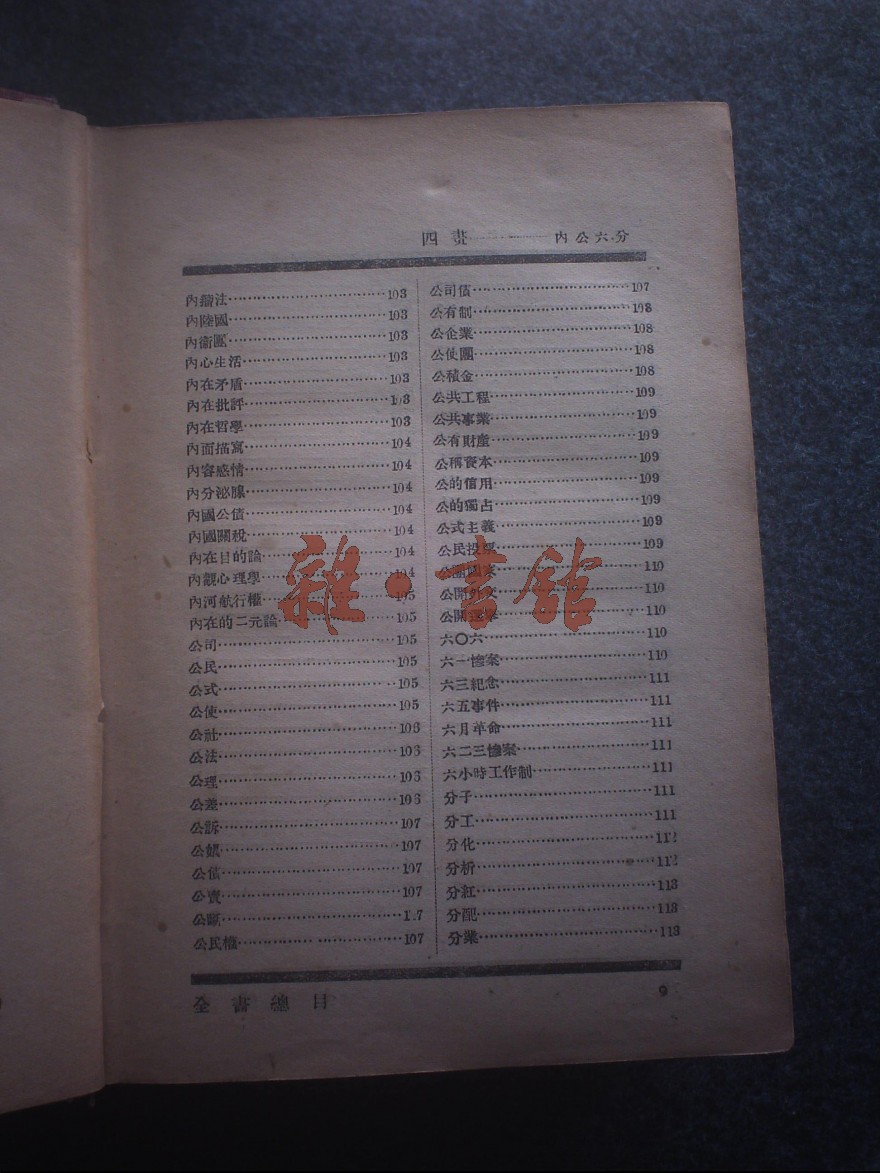 四畫————內公六分
內瘤法……103
內陸國……103
內衞團……103
內心生活……103
內在矛盾……103
內在批評……103
內在哲學……103
內面描寫……104
內容感情……104
內分泌腺……104
內國公債……104
內國關稅……104
內在目的論……104
內觀心理學……104
內河航行權……105
內在的二元論……105
公司……105
公民……105
公式……105
公使……105
公社……106
公法……106
公理……106
公差……106
公訴……107
公娼……107
公債……107
公賣……107
公斷……107
公民權……107
公司債……107
公有制……108
公企業……108
公使團……108
公積金……108
公共工程……109
公共事業……109
公有財產……109
公稱資本……109
公的信用……109
公的獨占……109
公式主義……109
公民投票……109
公國家……110
公開外交……110
公開選舉……110
六〇六……110
六一慘案……110
六三紀念……111
六五事件……111
六月革命……111
六二三慘案……111
六小時工作制……111
分子……111
分工……111
分化……112
分析……112
分紅……113
分配……113
分業……113
全書總目
9
雜·書館